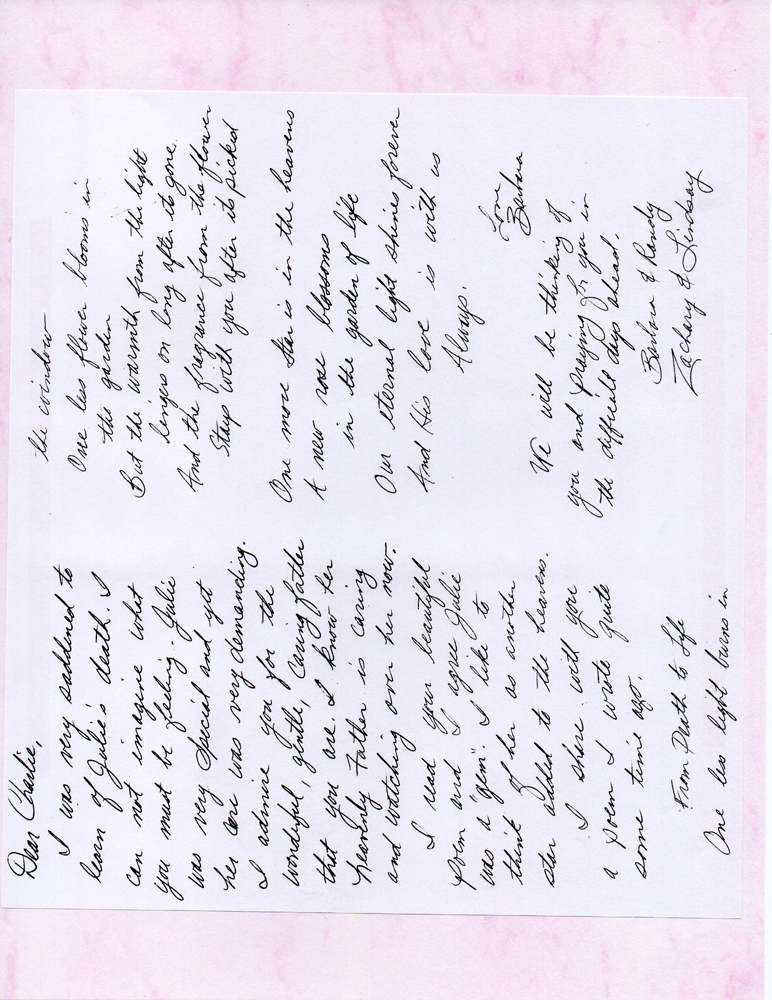 Dear Charlie,
I was very saddened to
learn of Julie's death. I
can not imagine what
you must be feeling. Julie
was very special and yet
her care was very demanding.
I admire you for the
wonderful, gentle, caring father
that you are. I know her
heavenly Father is caring
and watching over her now.
I read your beautiful
poem and I agree Julie
was a "gem". I like to
think of her as another
star added to the heavens.
I share with you
a poem I wrote quite
some time ago.
From Death to Life
One less light burns in
the window
One less flower blooms in
the garden
But the warmth from the light
lingers on long after its gone.
And the fragrance from the flower
Stays with you after its picked
One more star is in the heavens
A new rose blossoms
in the garden of life
Our eternal light shines forever
And His love is with us
Always.
Love
Barbara
We will be thinking of
you and praying for you in
the difficult days ahead.
Barbara & Randy
Zachary & Lindsay